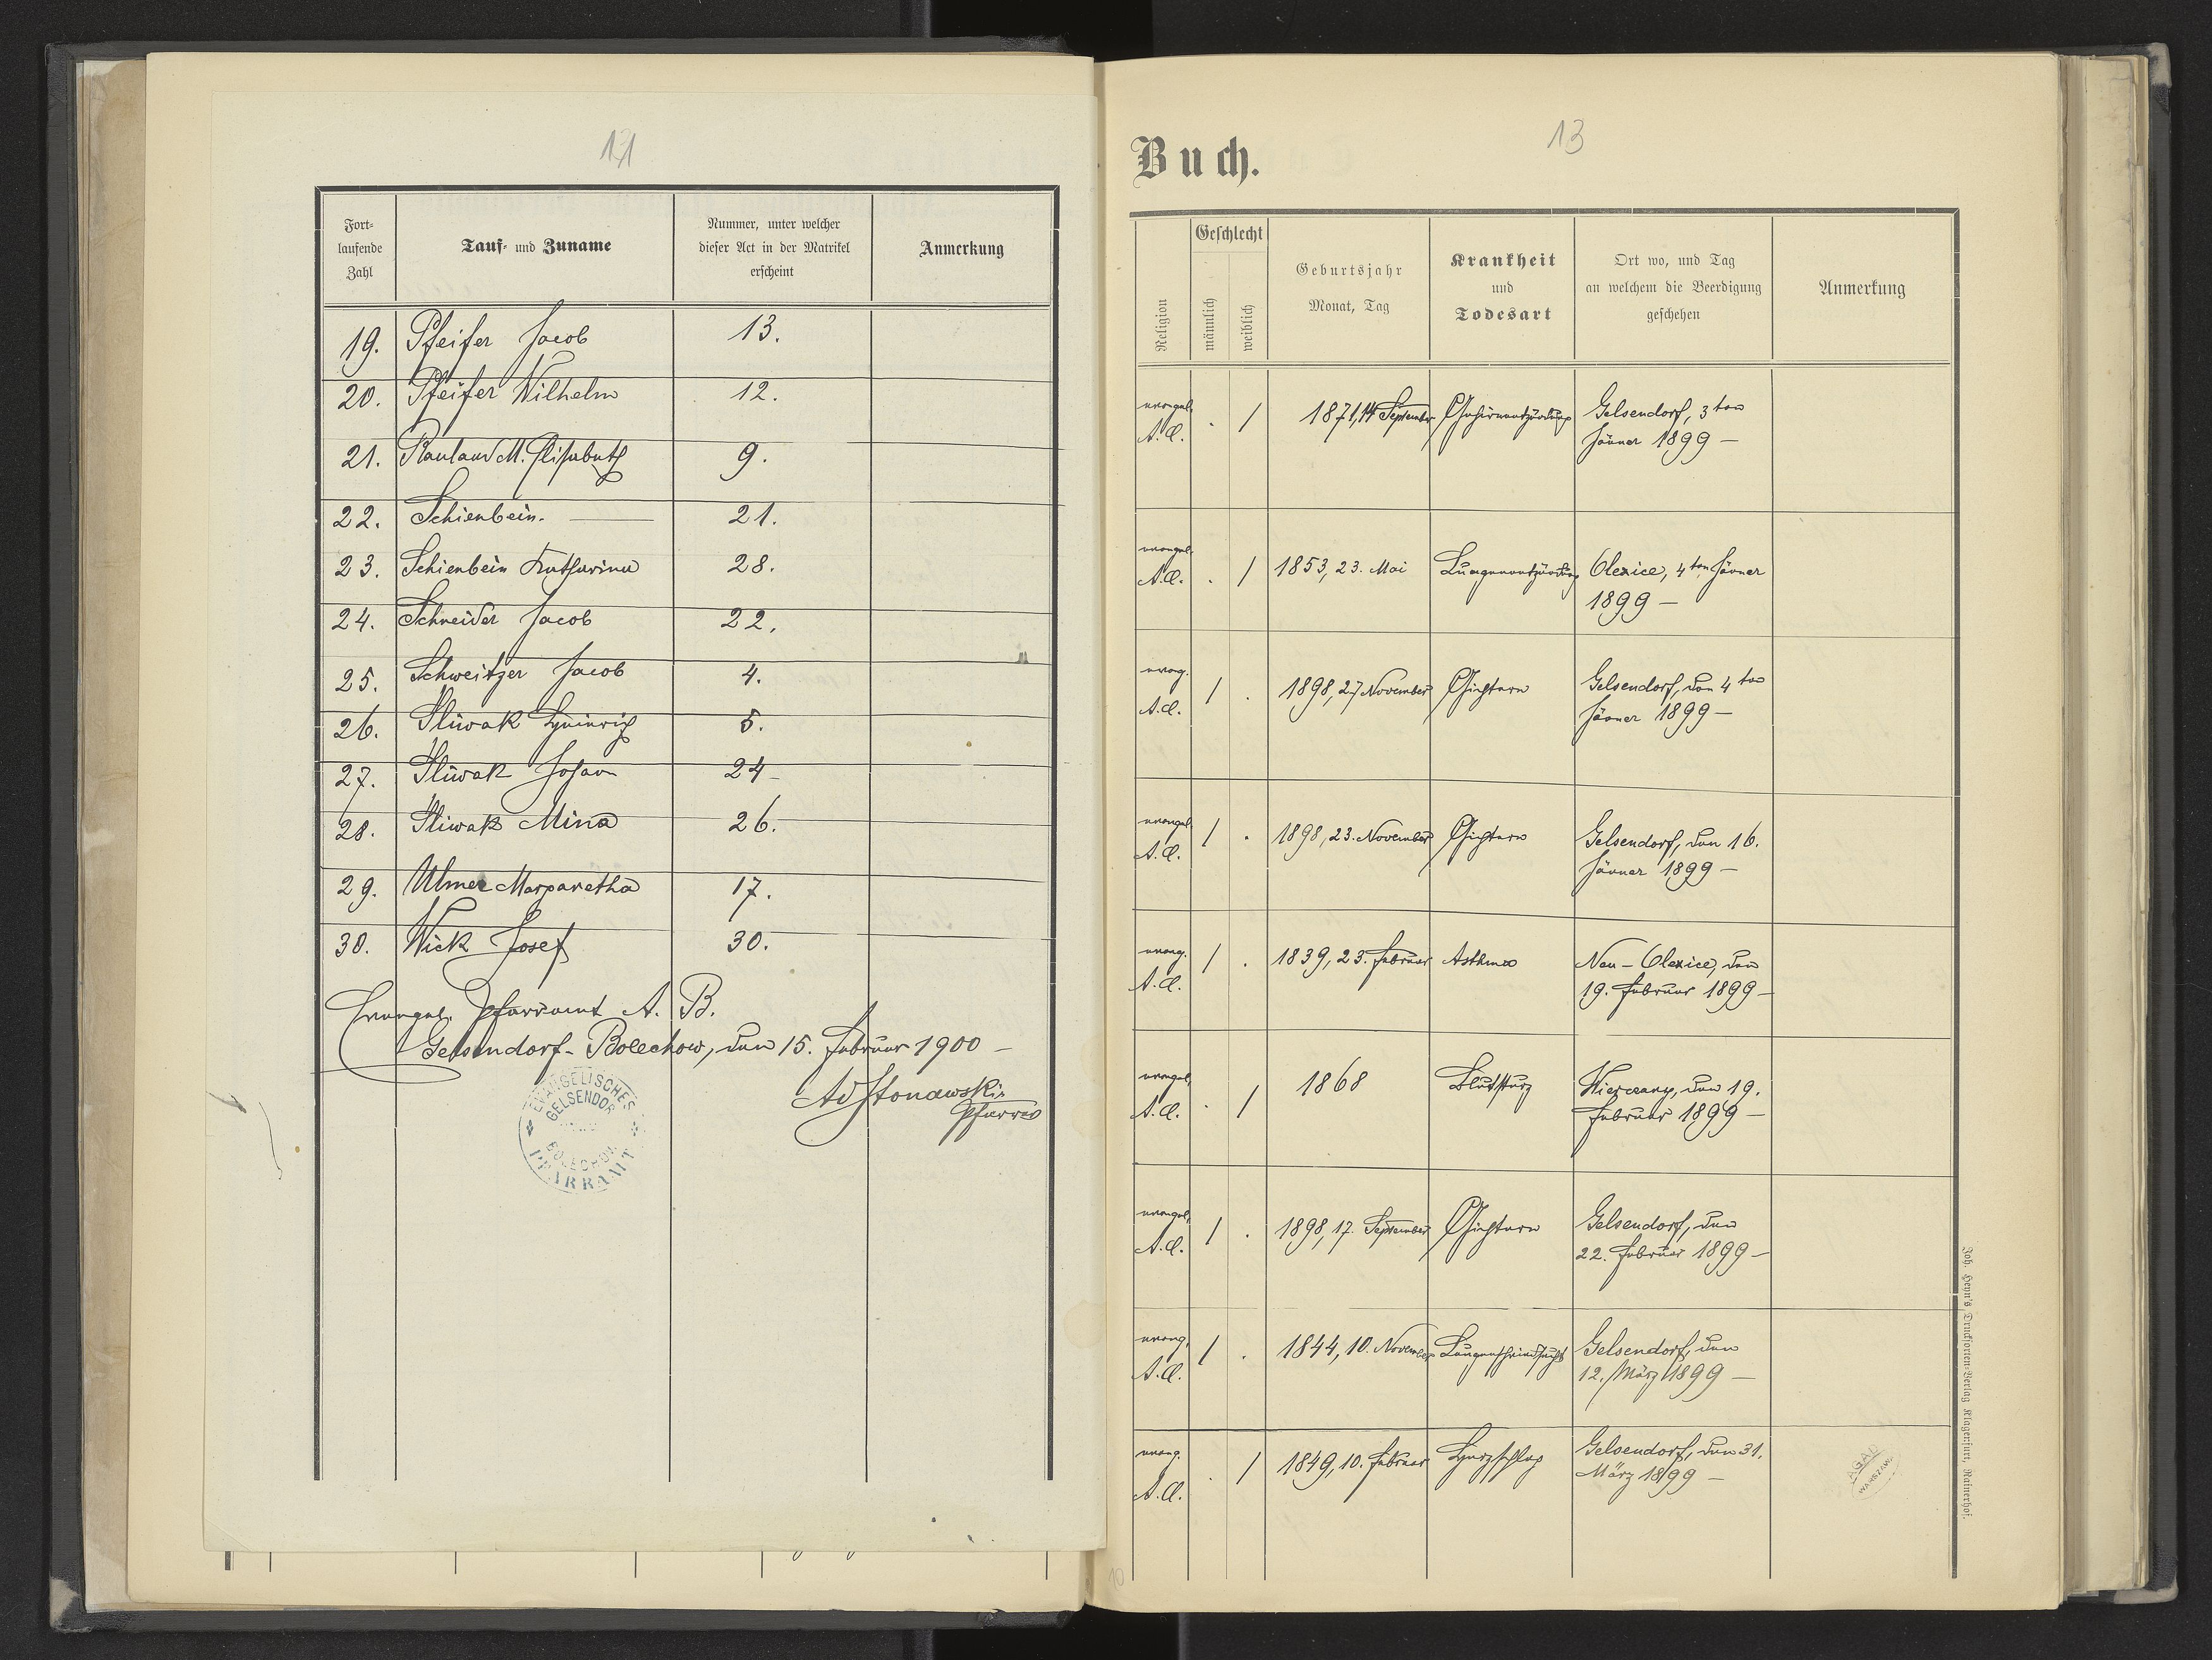 11
Fort-
laufende
Zahl
Tauf- und Zuname
Nummer, unter welcher
dieser Act in der Matrikel
erscheint
Anmerkung
19. Pfeifer Jacob 13.
20. Pfeifer Wilhelm 12.
21. Rauland M. Elisabeth 9.
22. Schienbein. — 21.
23. Schienbein Katharina 28.
24. Schneider Jacob 22.
25. Schweitzer Jacob 4.
26. Sliwak Heinrich 5.
27. Sliwak Johann 24
28. Sliwak Mina 26.
29. Ulmer Margaretha 17.
30. Wick Josef 30.
Evangel. Pfarramt A. B.
Gelsendorf-Bolechow, den 15. Februar 1900 —
Ad Stonawski
Pfarrer
EVANGELISCHES
GELSENDORF
BOLECHOW
PFARRAMT
Buch.
13
Religion
Geschlecht
männlich
weiblich
Geburtsjahr
Monat, Tag
Krankheit
und
Todesart
Ort wo, und Tag
an welchem die Beerdigung
geschehen
Anmerkung
evangel. . / 1871, 14 September Gehirnentzündung Gelsendorf, 3ten
A.C. Jänner 1899 —
evangel. . / 1853, 23. Mai Lungenentzündung Olexice, 4ten Jänner
A.C. 1899 —
evang. / . 1898, 27 November Gichtern Gelsendorf, den 4ten
A.C. Jänner 1899 —
evangel. / . 1898, 23. November Gichtern Gelsendorf, den 16.
A.C. Jänner 1899 —
evang. / . 1839, 23. Februar Asthma Neu-Olexice, den
A.C. 19. Februar 1899 —
evangel. . / 1868 Blutsturz den 19.
A.C. Februar 1899 —
evangel. / . 1898, 17. September Gichtern Gelsendorf, den
A.C. 22. Februar 1899 —
evang. / . 1844, 10. November Lungenschwindsucht Gelsendorf, den
A.C. 12. März 1899 —
evang. . / 1849, 10. Februar Herzschlag Gelsendorf, den 31.
A.C. März 1899 —
AGAD
WARSZAWA
Joh. Heyn's Drucksorten-Verlag Klagenfurt, Rainerhof.
10